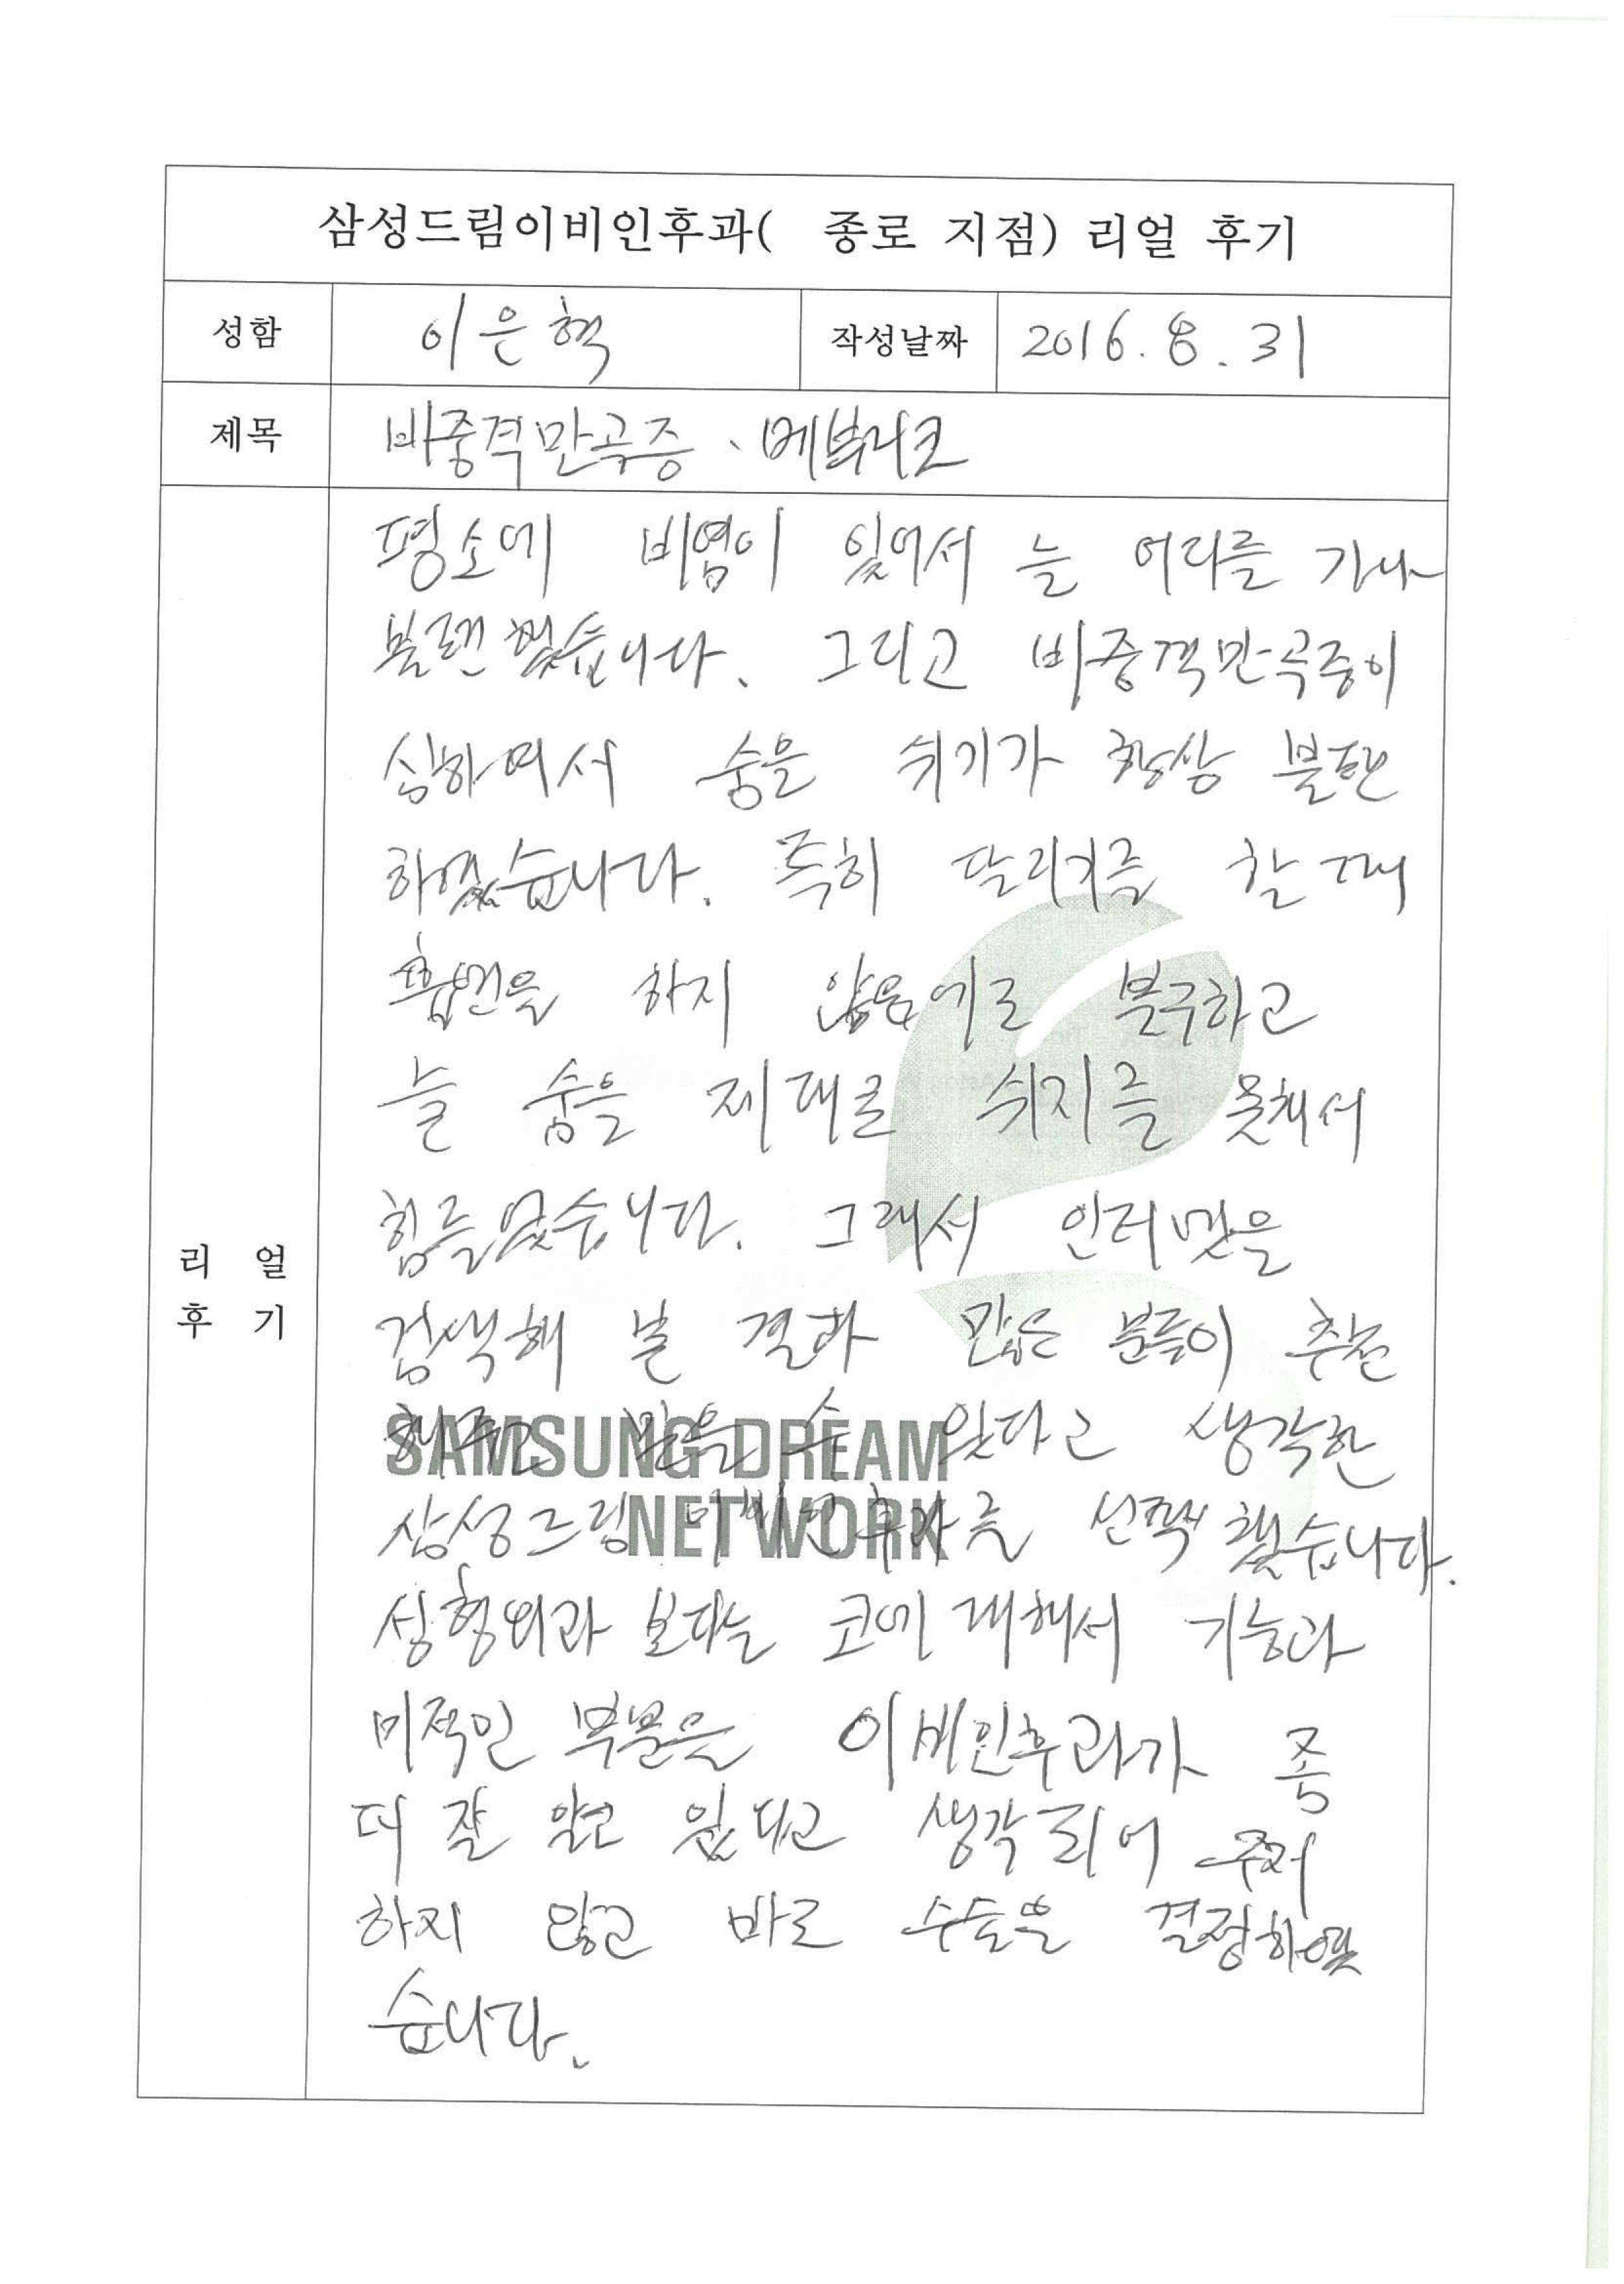 삼성드림이비인후과( 종로 지점) 리얼 후기
성함 이은혁 작성날짜 2016. 8. 31
제목 비중격만곡증、메부리코
평소에 비염이 있어서 늘 어디를 가나
불편했습니다. 그리고 비중격만곡증이
심하여서 숨을 쉬기가 항상 불편
하였습니다. 특히 달리기를 할 때
흡연을 하지 않음에도 불구하고
늘 숨을 제대로 쉬지를 못해서
힘들었습니다. 그래서 인터넷을
리 얼
후 기
검색해 본 결과 많은 분들이 추천
해주고 믿을 수 있다고 생각한
SAMSUNG DREAM
NETWORK
삼성드림이비인후과를 선택했습니다.
성형외과 보다는 코에 대해서 기능과
미적인 부분을 이비인후과가 좀
더 잘 알고 있다고 생각되어 주저
하지 않고 바로 수술을 결정하였
습니다.